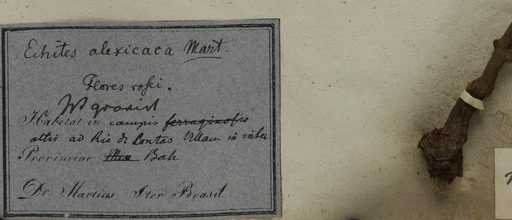 Echites alexicaca Mart.
Flores rosei.
Habitat in campis ferruginosis
altis ad Rio de Contas Villam in
Provinciae Bah
Dr Martius Iter Brasil